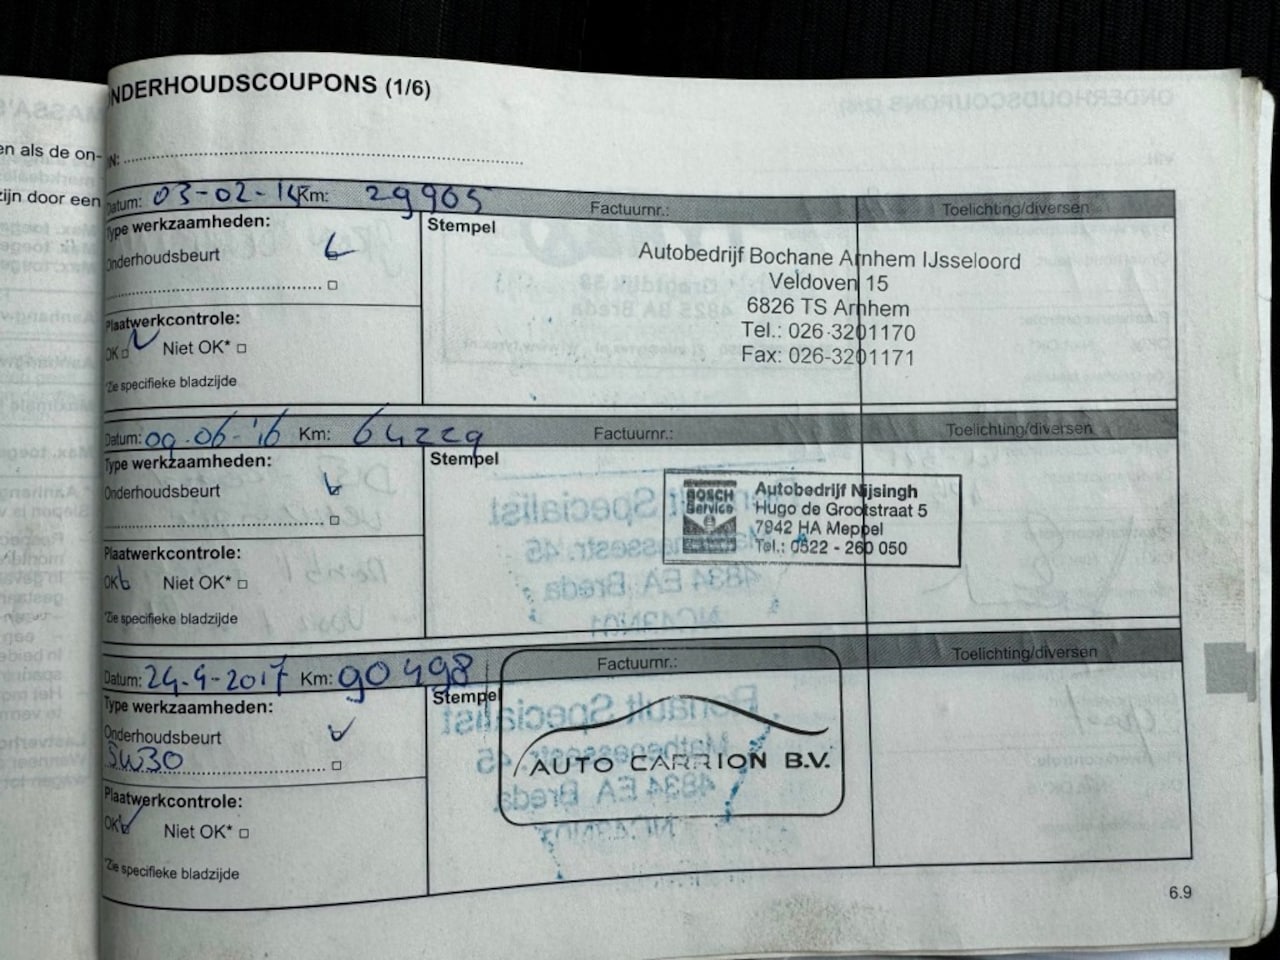 NDERHOUDSCOUPONS (1/6)
en als de on-
N:
zijn door een
Datum: 03-02-15 Km: 29905 Factuurnr.: Toelichting/diversen
Type werkzaamheden:
Stempel
Onderhoudsbeurt
Autobedrijf Bochane Arnhem IJsseloord
Veldoven 15
6826 TS Arnhem
Tel.: 026-3201170
Fax: 026-3201171
Plaatwerkcontrole:
OK Niet OK*
*Zie specifieke bladzijde
Datum: 09-06-'16 Km: 64229 Factuurnr.: Toelichting/diversen
Type werkzaamheden:
Stempel
Onderhoudsbeurt
BOSCH
Service
Autobedrijf Nijsingh
Hugo de Grootstraat 5
7942 HA Meppel
Tel.: 0522 - 260 050
Plaatwerkcontrole:
OK Niet OK*
*Zie specifieke bladzijde
Datum: 24-4-2017 Km: 90498 Factuurnr.: Toelichting/diversen
Type werkzaamheden:
Stempel
Onderhoudsbeurt
5W30
AUTO CARRION B.V.
Plaatwerkcontrole:
OK Niet OK*
*Zie specifieke bladzijde
6.9